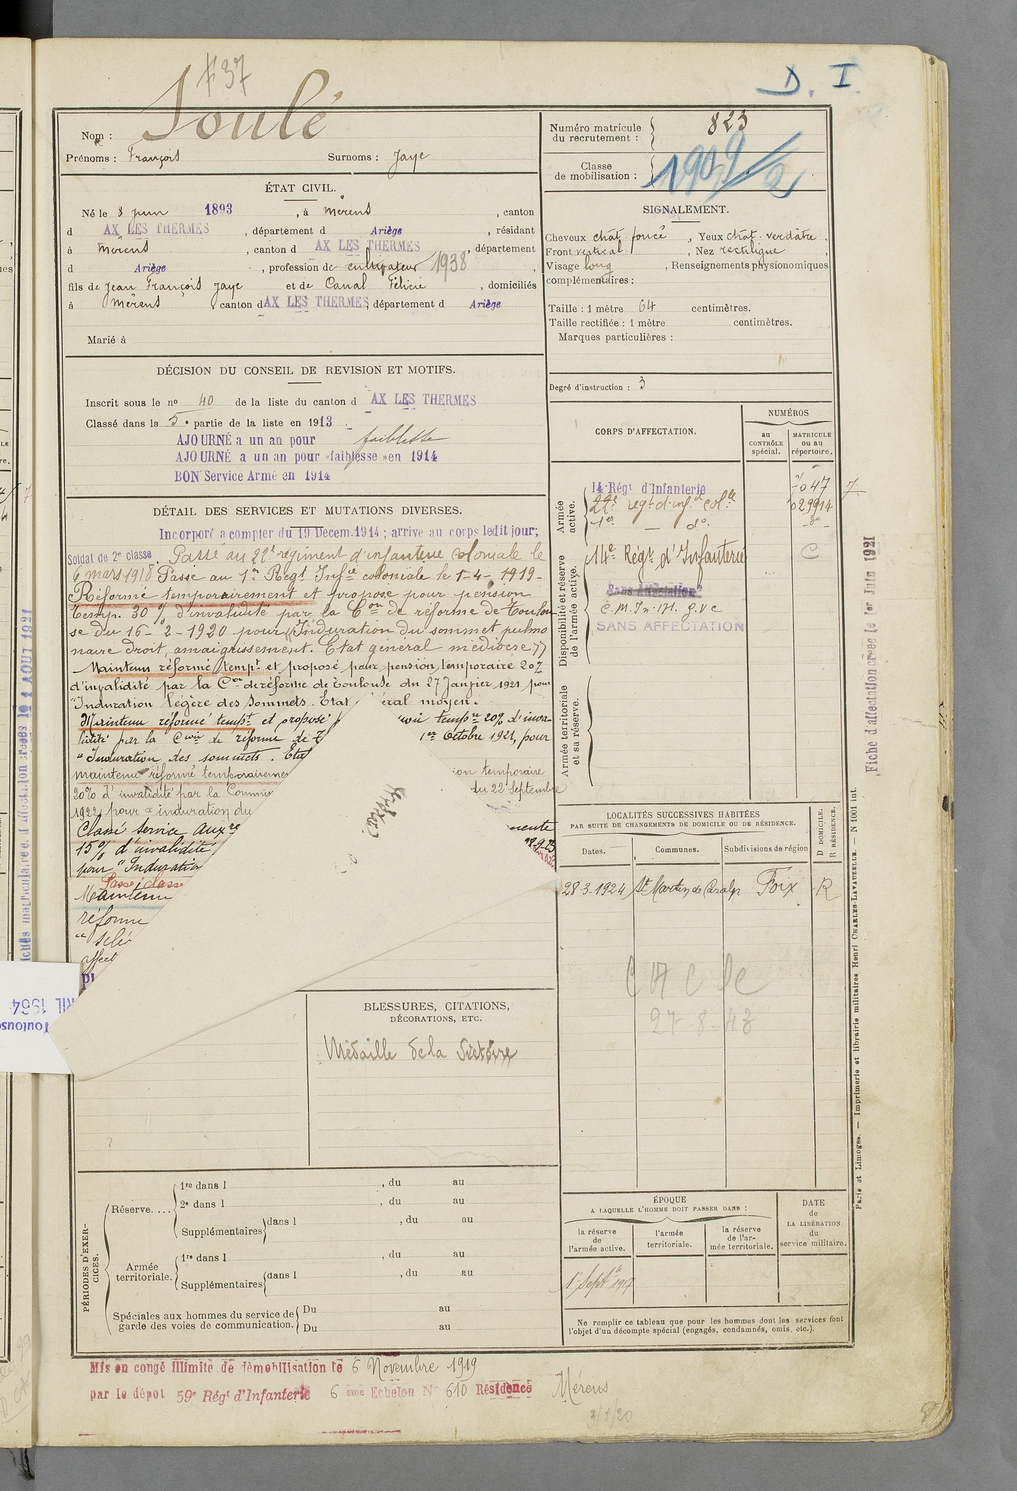 D. I.
Soulé
Nom :
Prénoms : François Surnoms : Jaye
ÉTAT CIVIL.
Né le 8 juin 1893, à Mérens, canton
d AX LES THERMES, département d Ariège, résidant
à Mérens, canton d AX LES THERMES, département
d Ariège, profession de cultivateur 1938
fils de Jean François Jaye et de Canal Félicie, domiciliés
à Mérens, canton d AX LES THERMES, département d Ariège
Marié à
DÉCISION DU CONSEIL DE REVISION ET MOTIFS.
Inscrit sous le no 40 de la liste du canton d AX LES THERMES
Classé dans la 5e partie de la liste en 1913.
AJOURNÉ a un an pour faiblesse
AJOURNÉ a un an pour «faiblesse» en 1914
BON Service Armé en 1914
DÉTAIL DES SERVICES ET MUTATIONS DIVERSES.
Incorporé a compter du 19 Décem. 1914 ; arrivé au corps ledit jour;
Soldat de 2e classe. Passé au 22e régiment d'infanterie coloniale le
6 mars 1918 Passé au 1er Régt Infie coloniale le 1-4-1919-
Réformé temporairement et proposé pour pension
temp. 30 % d'invalidité par la Con de réforme de Toulou-
se du 16-2-1920 pour "Induration du sommet pulmo
naire droit, amaigrissement. Etat général médiocre"
Maintenu réformé tempt et proposé pour pension temporaire 20%
d'invalidité par la Con de réforme de Toulouse du 27 Janvier 1921 pour
"Induration légère des sommets. Etat éral moyen.
Maintenu réformé tempt et proposé temp re 20% d'inva
lidité par la Cion de réforme de T 1er Octobre 1921, pour
"Induration des sommets. Etat
maintenu réformé temporairemen ion temporaire
20% d'invalidité par la Commis du 22 Septembre
1922 pour "induration du
Classé Service Auxre nente
15% d'invalidité
pour "Induratio
Passé classe
Maintenu
réformé
affect
BLESSURES, CITATIONS,
DÉCORATIONS, ETC.
Médaille de la Victoire
PÉRIODES D'EXERCICES.
Réserve.... 1re dans l , du au
2e dans l , du au
Supplémentaires dans l , du au
Armée territoriale. 1re dans l , du au
Supplémentaires dans l , du au
Spéciales aux hommes du service de garde des voies de communication. Du au
Du au
Mis en congé illimité de démobilisation le 6 Novembre 1919
par le dépot 59e Régt d'Infanterie 6 ème Echelon No 610 Résidence Mérens
3/1/20
Numéro matricule du recrutement : 823
Classe de mobilisation :
SIGNALEMENT.
Cheveux chat. foncé, Yeux chat. verdâtre,
Front vertical, Nez rectiligne,
Visage long, Renseignements physionomiques
complémentaires :
Taille : 1 mètre 64 centimètres.
Taille rectifiée : 1 mètre centimètres.
Marques particulières :
Degré d'instruction : 3
CORPS D'AFFECTATION.
NUMÉROS
au CONTRÔLE spécial.
MATRICULE ou au répertoire.
Armée active.
14 Régt d'Infanterie 7047
22e régt d'infie colle 029914
1er — do
Disponibilité et réserve de l'armée active.
14e Régt d'Infanterie C
Sans affectation
SANS AFFECTATION
Armée territoriale et sa réserve.
LOCALITÉS SUCCESSIVES HABITÉES
PAR SUITE DE CHANGEMENTS DE DOMICILE OU DE RÉSIDENCE.
Dates. Communes. Subdivisions de région
D DOMICILE. R RÉSIDENCE.
28-3-1924 St Martin de Caralp Foix R
27-8-43
ÉPOQUE
A LAQUELLE L'HOMME DOIT PASSER DANS :
la réserve de l'armée active.
l'armée territoriale.
la réserve de l'armée territoriale.
DATE de LA LIBÉRATION du service militaire.
Ne remplir ce tableau que pour les hommes dont les services font
l'objet d'un décompte spécial (engagés, condamnés, omis, etc.).
Fiche d'affectation créée le 1er Juin 1921
Paris et Limoges. — Imprimerie et librairie militaires Henri CHARLES-LAVAUZELLE. — N 1001 int.